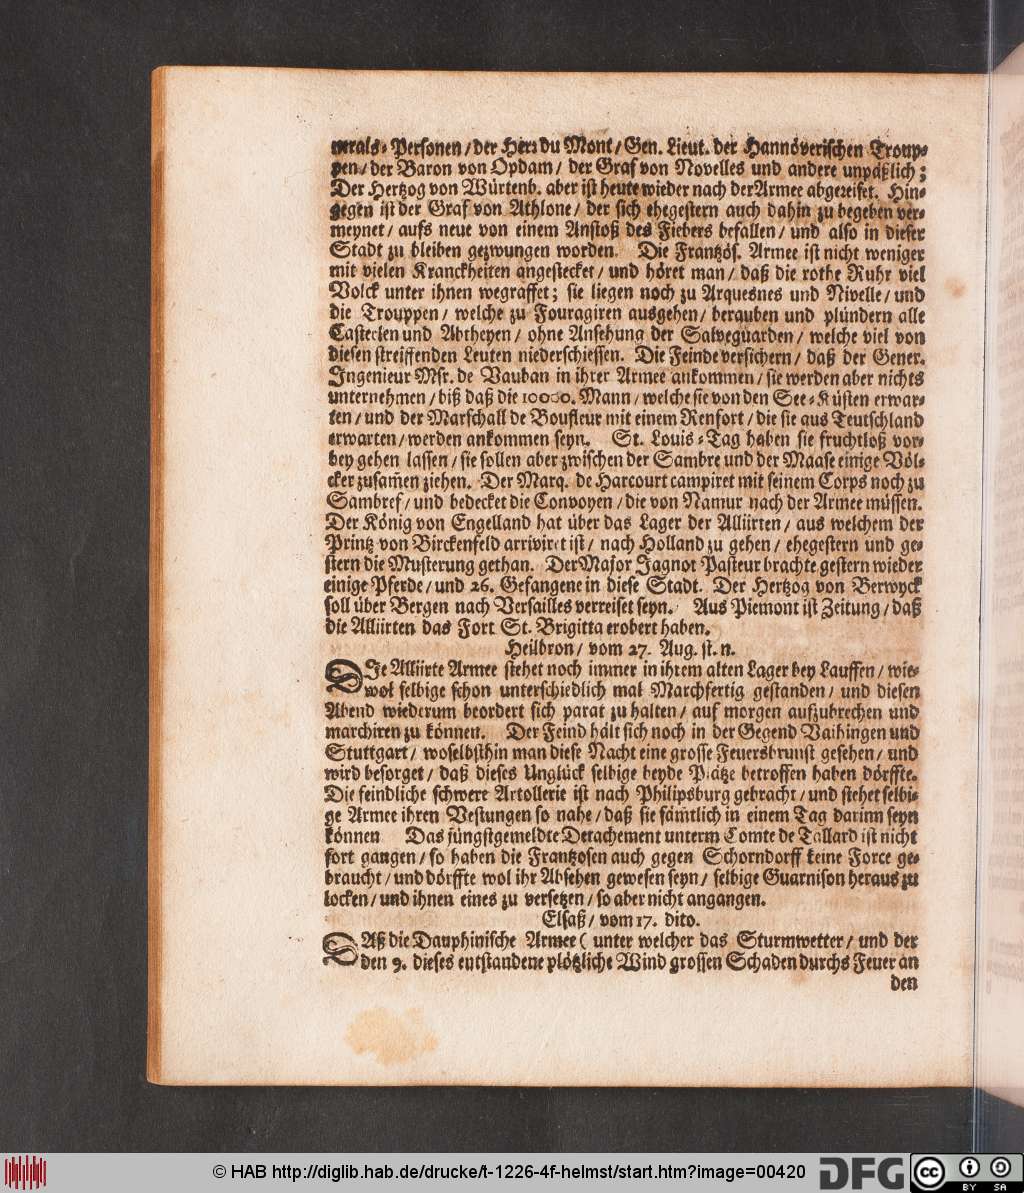 nerals-Personen/der Herr du Mont/Gen. Lieut. der Hannöverischen Troup-
pen/der Baron von Opdam/ der Graf von Novelles und andere unpäßlich;
Der Hertzog von Würtenb. aber ist heute wieder nach der Armee abgereiset. Hin-
gegen ist der Graf von Athlone/ der sich ehegestern auch dahin zu begeben ver-
meynet/ aufs neue von einem Anstoß des Fiebers befallen/ und also in dieser
Stadt zu bleiben gezwungen worden. Die Frantzös. Armee ist nicht weniger
mit vielen Kranckheiten angestecket/ und höret man/ daß die rothe Ruhr viel
Volck unter ihnen wegraffet; sie liegen noch zu Arquesnes und Nivelle/ und
die Trouppen/ welche zu Fouragiren ausgehen/ berauben und plündern alle
Casteelen und Abtheyen/ ohne Ansehung der Salveguarden/ welche viel von
diesen streiffenden Leuten niederschiessen. Die Feinde versichern/ daß der Gener.
Ingenieur Msr. de Vauban in ihrer Armee ankommen/ sie werden aber nichts
unternehmen/ biß daß die 10000. Mann/ welche sie von den See-Küsten erwar-
ten/ und der Marschall de Boufleur mit einem Renfort/ die sie aus Teutschland
erwarten/ werden ankommen seyn. St. Louis-Tag haben sie fruchtloß vor-
bey gehen lassen/ sie sollen aber zwischen der Sambre und der Maase einige Völ-
cker zusam̄en ziehen. Der Marq. de Harcourt campiret mit seinem Corps noch zu
Sambref/ und bedecket die Convoyen/ die von Namur nach der Armee müssen.
Der König von Engelland hat über das Lager der Alliirten/ aus welchem der
Printz von Birckenfeld arriviret ist/ nach Holland zu gehen/ ehegestern und ge-
stern die Musterung gethan. Der Major Jagnot Pasteur brachte gestern wieder
einige Pferde/ und 26. Gefangene in diese Stadt. Der Hertzog von Berwyck
soll über Bergen nach Versailles verreiset seyn. Aus Piemont ist Zeitung/ daß
die Alliirten das Fort St. Brigitta erobert haben.
Heilbron/ vom 27. Aug. st. n.
DIe Alliirte Armee stehet noch immer in ihrem alten Lager bey Lauffen/ wie-
wol selbige schon unterschiedlich mal Marchfertig gestanden/ und diesen
Abend wiederum beordert sich parat zu halten/ auf morgen aufzubrechen und
marchiren zu können. Der Feind hält sich noch in der Gegend Vaihingen und
Stuttgart/ woselbsthin man diese Nacht eine grosse Feuersbrunst gesehen/ und
wird besorget/ daß dieses Unglück selbige beyde Plätze betroffen haben dörffte.
Die feindliche schwere Artollerie ist nach Philipsburg gebracht/ und stehet selbi-
ge Armee ihren Vestungen so nahe/ daß sie säm̄tlich in einem Tag darinn seyn
können Das jüngstgemeldte Detachement unterm Comte de Tallard ist nicht
fort gangen/ so haben die Frantzosen auch gegen Schorndorff keine Force ge-
braucht/ und dörffte wol ihr Absehen gewesen seyn/ selbige Guarnison heraus zu
locken/ und ihnen eines zu versetzen/ so aber nicht angangen.
Elsaß/ vom 17. dito.
DAß die Dauphinische Armee (unter welcher das Sturmwetter/ und der
den 9. dieses entstandene plötzliche Wind grossen Schaden durchs Feuer an
den
© HAB http://diglib.hab.de/drucke/t-1226-4f-helmst/start.htm?image=00420
DFG
cc
BY SA